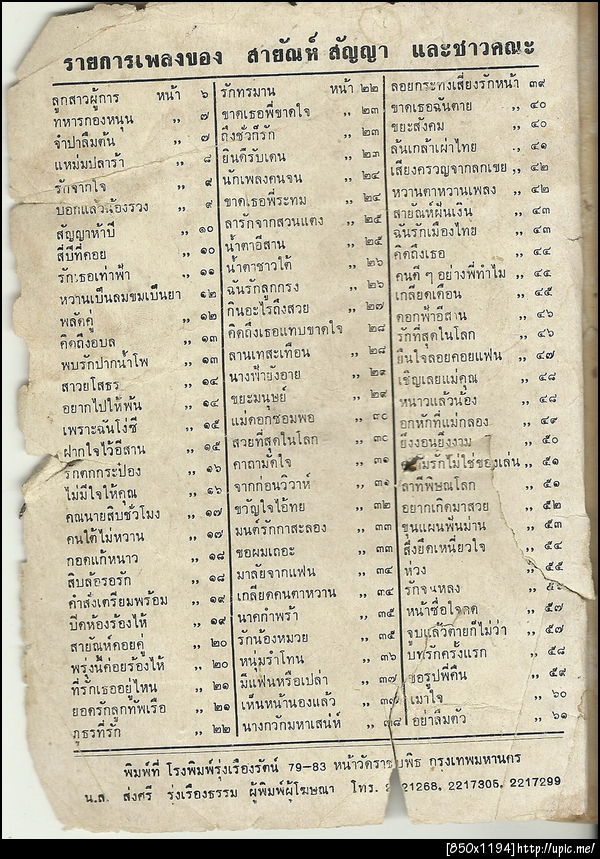 รายการเพลงของ สายัณห์ สัญญา และชาวคณะ
ลูกสาวผู้การ หน้า ๖
ทหารกองหนุน ,, ๗
จำปาลืมต้น ,, ๗
แหม่มปลาร้า ,, ๘
รักจากใจ ,, ๙
บอกแล้วน้องรวง ,, ๙
สัญญาห้าปี ,, ๑๐
สี่ปีที่คอย ,, ๑๐
รักเธอเท่าฟ้า ,, ๑๑
หวานเป็นลมขมเป็นยา ๑๒
พลัดคู่ ,, ๑๒
คิดถึงอุบล ,, ๑๓
พบรักปากน้ำโพ ,, ๑๓
สาวยโสธร ,, ๑๔
อยากไปให้พ้น ,, ๑๔
เพราะฉันโง่ซี ,, ๑๕
ฝากใจไว้อีสาน ,, ๑๕
รักตกกระป๋อง ,, ๑๖
ไม่มีใจให้คุณ ,, ๑๖
คุณนายสิบชั่วโมง ,, ๑๗
คนใต้ไม่หวาน ,, ๑๗
กอดแก้หนาว ,, ๑๘
สิบล้อรอรัก ,, ๑๘
คำสั่งเตรียมพร้อม ,, ๑๙
ปิดห้องร้องไห้ ,, ๑๙
สายัณห์คอยคู่ ,, ๒๐
พรุ่งนี้ค่อยร้องไห้ ,, ๒๐
ที่รักเธออยู่ไหน ,, ๒๑
ยอดรักลูกทัพเรือ ,, ๒๑
ภูธรที่รัก ,, ๒๒
รักทรมาน หน้า ๒๒
ขาดเธอพี่ขาดใจ ,, ๒๓
ถึงชั่วก็รัก ,, ๒๓
ยินดีรับเดน ,, ๒๓
นักเพลงคนจน ,, ๒๔
ขาดเธอพี่ระทม ,, ๒๔
ลารักจากสวนแตง ,, ๒๕
น้ำตาอีสาน ,, ๒๕
น้ำตาชาวใต้ ,, ๒๖
ฉันรักลูกกรุง ,, ๒๖
กินอะไรถึงสวย ,, ๒๗
คิดถึงเธอแทบขาดใจ ๒๘
ลานเทสะเทือน ,, ๒๘
นางฟ้ายังอาย ,, ๒๙
ขยะมนุษย์ ,, ๒๙
แม่ดอกซ่อมพอ ,, ๓๐
สวยที่สุดในโลก ,, ๓๐
คาถามัดใจ ,, ๓๑
จากก่อนวิวาห์ ,, ๓๑
ขวัญใจไอ้ทุย ,, ๓๒
มนต์รักกาสะลอง ,, ๓๓
ขอผมเถอะ ,, ๓๓
มาลัยจากแฟน ,, ๓๔
เกลียดคนตาหวาน ,, ๓๔
นาคกำพร้า ,, ๓๕
รักน้องหมวย ,, ๓๕
หนุ่มรำโทน ,, ๓๖
มีแฟนหรือเปล่า ,, ๓๗
เห็นหน้านองแล้ว ,, ๓๗
นางกวักมหาเสน่ห์ ,, ๓๘
ลอยกระทงเสี่ยงรักหน้า ๓๙
ขาดเธอฉันตาย ,, ๔๐
ขยะสังคม ,, ๔๐
ล้นเกล้าเผ่าไทย ,, ๔๑
เสียงครวญจากลูกเขย ,, ๔๒
หวานตาหวานเพลง ,, ๔๒
สายัณห์ฝันเงิน ,, ๔๓
ฉันรักเมืองไทย ,, ๔๓
คิดถึงเธอ ,, ๔๔
คนดีๆ อย่างพี่ทำไม ,, ๔๕
เกลียดเดือน ,, ๔๕
ดอกฟ้าอีสาน ,, ๔๖
รักที่สุดในโลก ,, ๔๖
ยืนใจลอยคอยแฟน ,, ๔๗
เชิญเลยแม่คุณ ,, ๔๘
หนาวแล้วน้อง ,, ๔๘
อกหักที่แม่กลอง ,, ๔๙
ยิ่งงอนยิ่งงาม ,, ๕๐
ความรักไม่ใช่ของเล่น ,, ๕๑
ลาทีพิษณุโลก ,, ๕๑
อยากเกิดมาสวย ,, ๕๒
ขุนแผนพันม่าน ,, ๕๓
สิ่งยึดเหนี่ยวใจ ,, ๕๔
ห่วง ,, ๕๕
รักจนหลง ,,
หน้าซื่อใจคด ,, ๕๗
จูบแล้วตายก็ไม่ว่า ,, ๕๗
บทรักครั้งแรก ,, ๕๘
ขอรูปพี่คืน ,, ๕๙
เมาใจ ,, ๖๐
อย่าลืมตัว ,, ๖๑
พิมพ์ที่ โรงพิมพ์รุ่งเรืองรัตน์ 79-83 หน้าวัดราชบพิธ กรุงเทพมหานคร
น.ส. ส่งศรี รุ่งเรืองธรรม ผู้พิมพ์ผู้โฆษณา โทร. 2221268, 2217305, 2217299
[850x1194]http://upic.me/